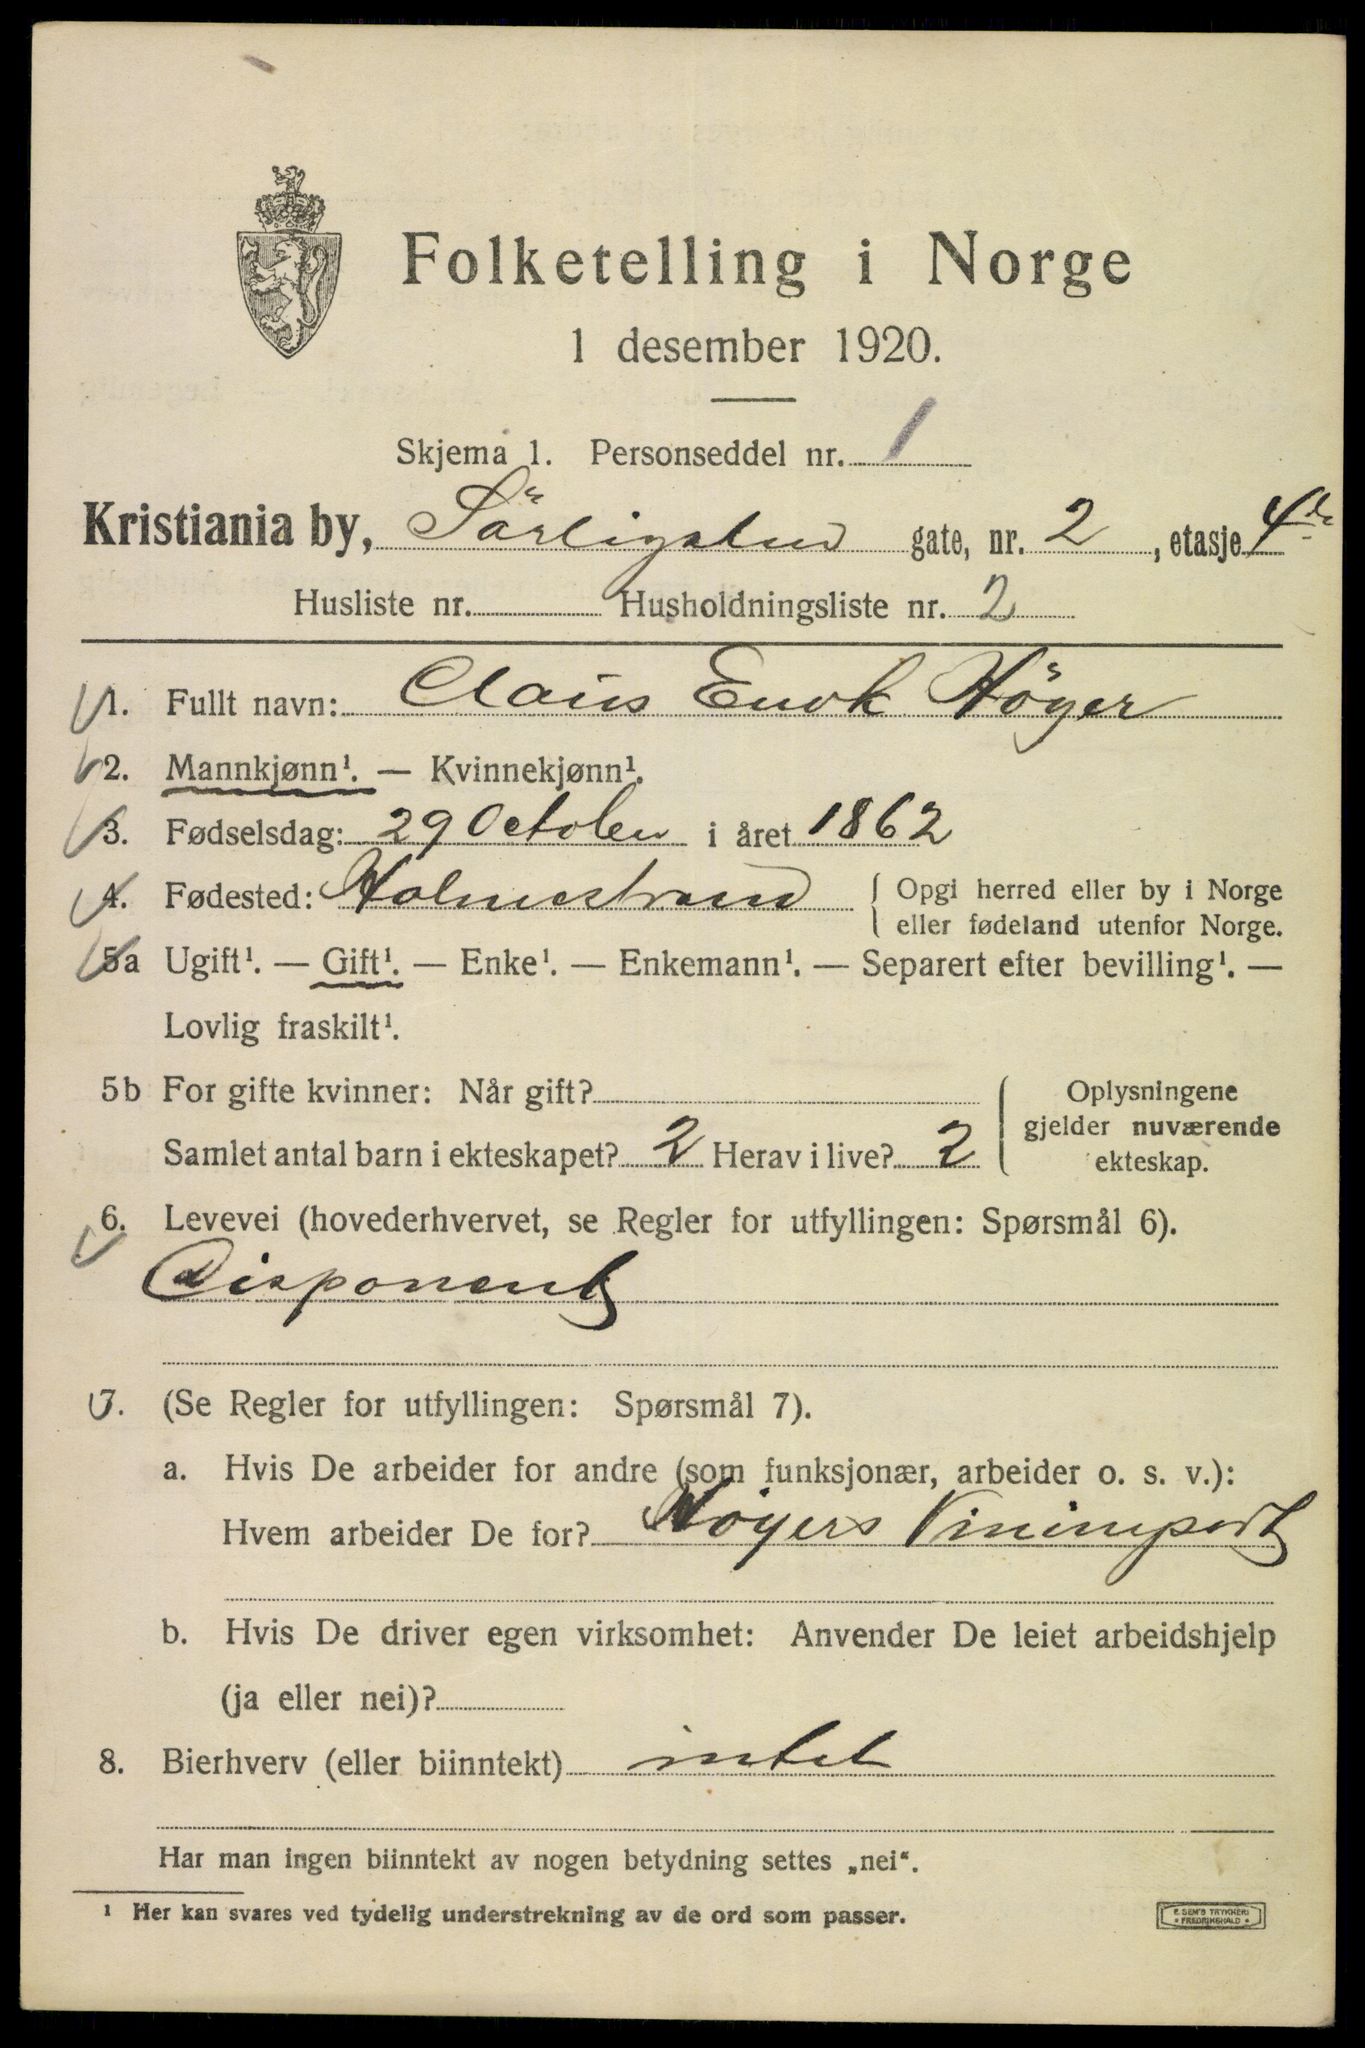 Folketelling i Norge
1 desember 1920.
Skjema 1. Personseddel nr. 1
Kristiania by, gate, nr. 2, etasje 4de
Husliste nr. Husholdningsliste nr. 2
1. Fullt navn: Claus Enok Höyer
2. Mannkjønn¹. — Kvinnekjønn¹.
3. Fødselsdag: 29 October i året 1862
4. Fødested: Holmestrand { Opgi herred eller by i Norge
eller fødeland utenfor Norge.
5a Ugift¹. — Gift¹. — Enke¹. — Enkemann¹. — Separert efter bevilling¹. —
Lovlig fraskilt¹.
5b For gifte kvinner: Når gift? { Oplysningene
gjelder nuværende
Samlet antal barn i ekteskapet? 2 Herav i live? 2 ekteskap.
6. Levevei (hovederhvervet, se Regler for utfyllingen: Spørsmål 6).
Disponent
7. (Se Regler for utfyllingen: Spørsmål 7).
a. Hvis De arbeider for andre (som funksjonær, arbeider o. s. v.):
Hvem arbeider De for? Höyers Vinimport
b. Hvis De driver egen virksomhet: Anvender De leiet arbeidshjelp
(ja eller nei)?
8. Bierhverv (eller biinntekt) intet
Har man ingen biinntekt av nogen betydning settes „nei“.
¹ Her kan svares ved tydelig understrekning av de ord som passer.
E. SEM'S TRYKKERI
* FREDRIKSHALD *